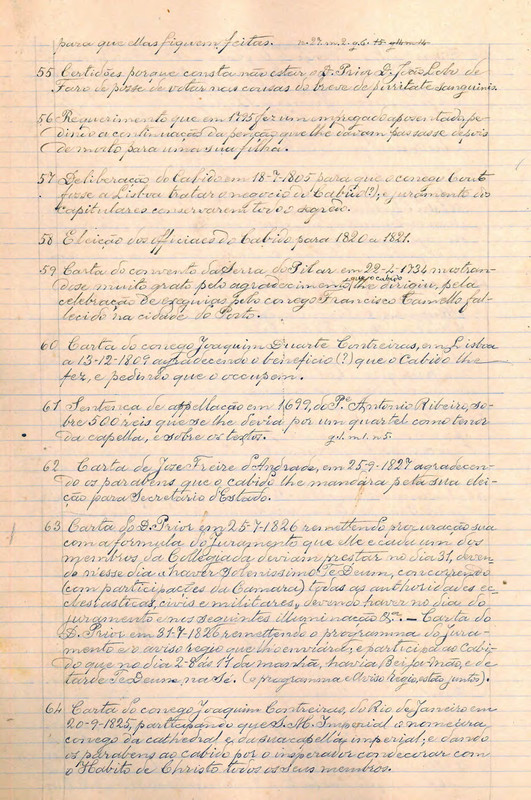 para que ellas fiquem feitas. n. 27. m. 2. g. 6.
55 Certidões porque consta não estar o D. Prior D. João Lobo de
Faro de posse de votar nas cousas do breve de puritate sanguinis.
56 Requerimento que em 1775 fez um empregado aposentado, pe-
dindo a continuação da porção que lhe davam passasse depois
de morto para uma sua filha.
57 Deliberação do Cabido em 18-7-1805 para que o conego Cout
fosse a Lisboa tratar o negocio do Cabido (?), e juramento dos
capitulares conservarem todo o segredo.
58 Eleição dos officiaes do Cabido para 1820 a 1821.
59 Carta do convento da Serra do Pilar em 22-4-1734 mostran-
dose muito grato pelo agradecimento que o cabido lhe dirigiu, pela
celebração de exequias pelo conego Francisco Camello fal-
lecido na cidade do Porto.
60 Carta do conego Joaquim Duarte Contreiras, em Lisboa
a 13-12-1809 agradecendo o beneficio (?) que o Cabido lhe
fez, e pedindo que o occupem.
61 Sentença de appellação em 1699, do Pe Antonio Ribeiro, so-
bre 500 reis que se lhe devia por um quartel como tenor
da capella, e sobre os textos. g. 1. m. 1. n. 5.
62 Carta de Joze Freire d'Andrade, em 25-9-1827 agradecen-
do os parabens que o cabido lhe mandára pela sua elei-
ção para Secretario d'Estado.
63 Carta do D. Prior em 25-7-1826 remettendo procuração sua
com a formula do juramento que elle e cada um dos
membros da Collegiada deviam prestar no dia 31, deven-
do nesse dia haver Soleníssimo Te Deum, concorrendo
(com participações da Camara) todas as authoridades ec-
clesiasticas, civis e militares, devendo haver no dia do
juramento e nos seguintes illuminação &a. — Carta do
D. Prior em 31-7-1826 remettendo o programma do jura-
mento e o aviso regio que lho enviara; e participa ao Cabi-
do que no dia 2-8 ás 11 da manhã, havia Beija-mão, e de
tarde Te Deum, na Sé. (o programma e Aviso Regio, estão juntos).
64 Carta do conego Joaquim Contreiras, do Rio de Janeiro em
20-9-1825, participando que S. M. Imperial o nomeára,
conego da cathedral e da sua capella imperial; e dando
os parabens ao cabido por o imperador condecorar com
o Habito de Christo todos os seus membros.